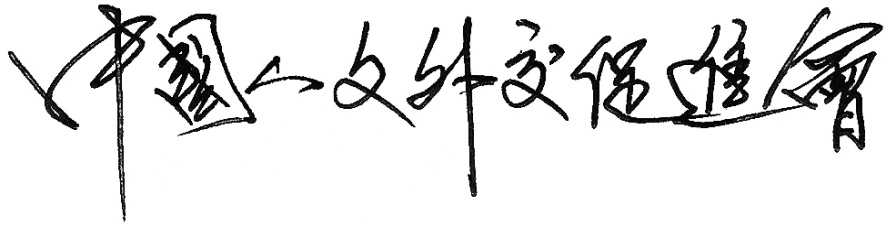 中國人文外交促進會